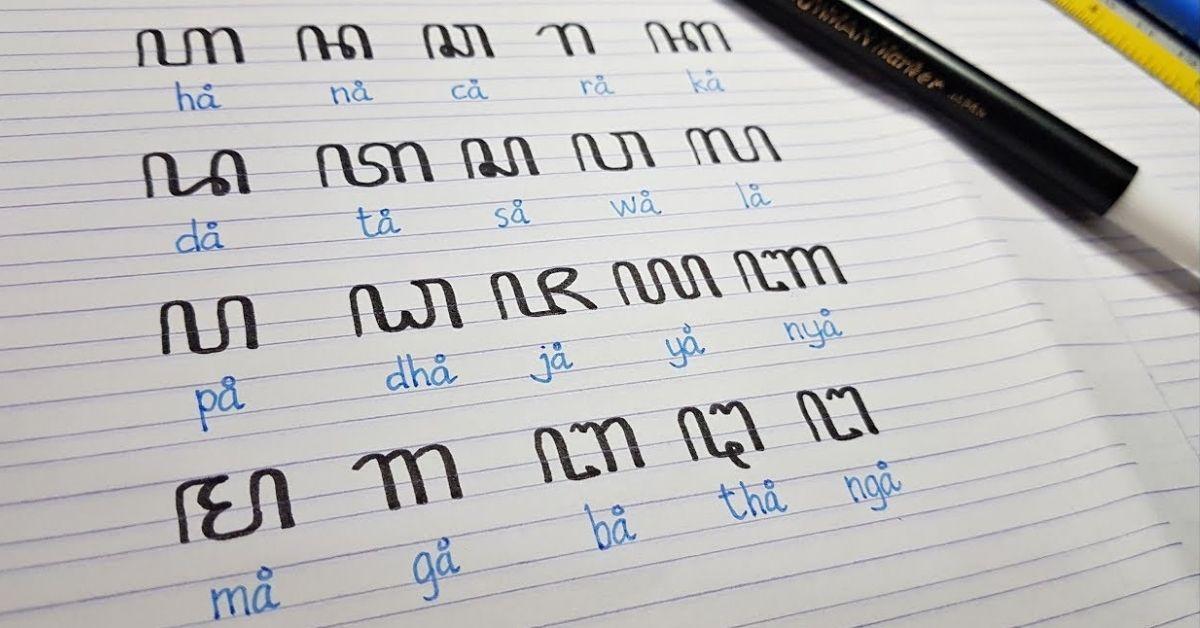 ꦲ ꦤ ꦕ ꦫ ꦏ
hå nå cå rå kå
ꦢ ꦠ ꦱ ꦮ ꦭ
då tå så wå lå
ꦥ ꦝ ꦗ ꦪ ꦚ
på dhå jå yå nyå
ꦩ ꦒ ꦧ ꦛ ꦔ
må gå bå thå ngå
Marker
JAPAN